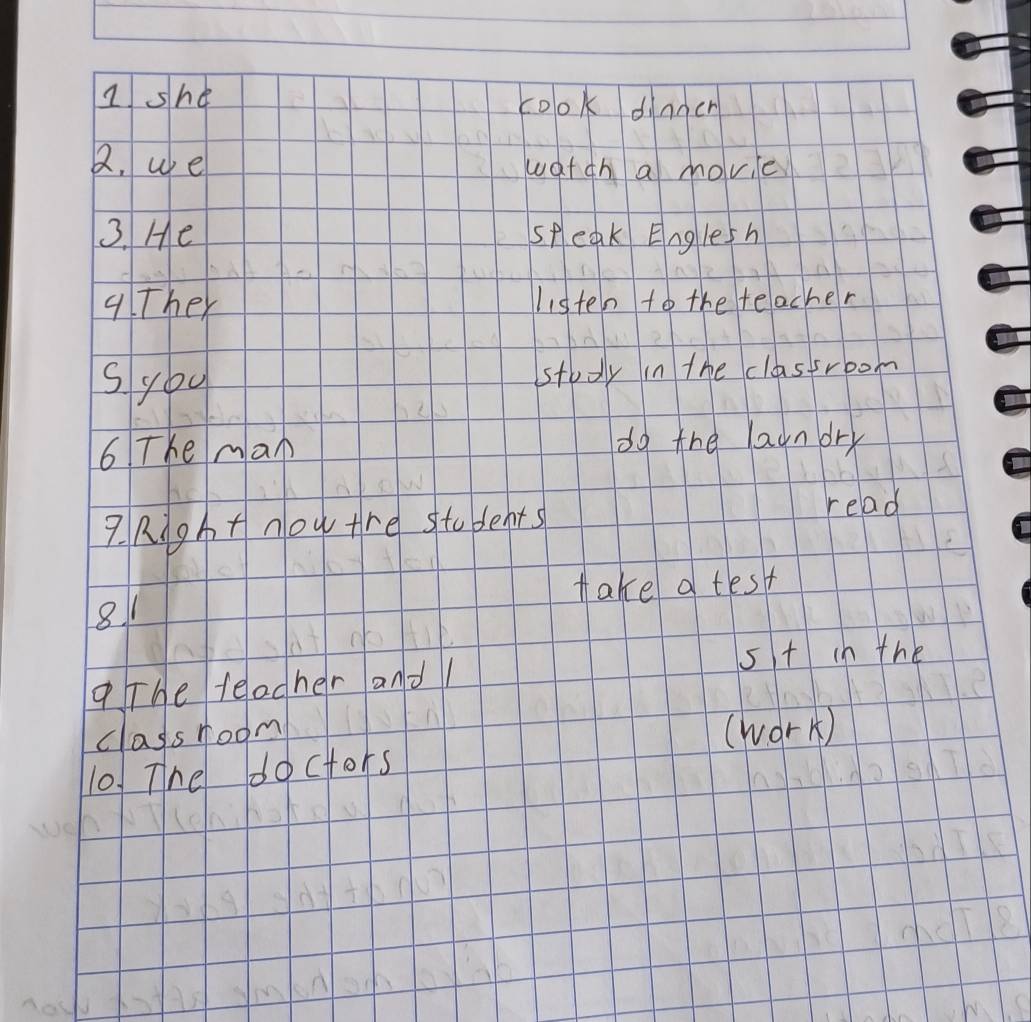 1. she cook dinner
2. we watch a movie
3. He speak Englesh
4. They listen to the teacher
5. you study in the classroom
6. The man do the laundry
7. Right now the students read
8. I take a test
9. The teacher and I sit in the
classroom
10. The doctors (work)